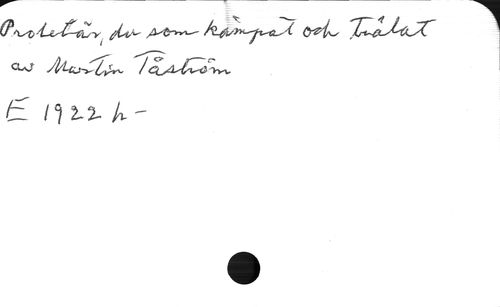 Proletär, du som kämpat och trälat
av Martin Tåström
E 1922 h -